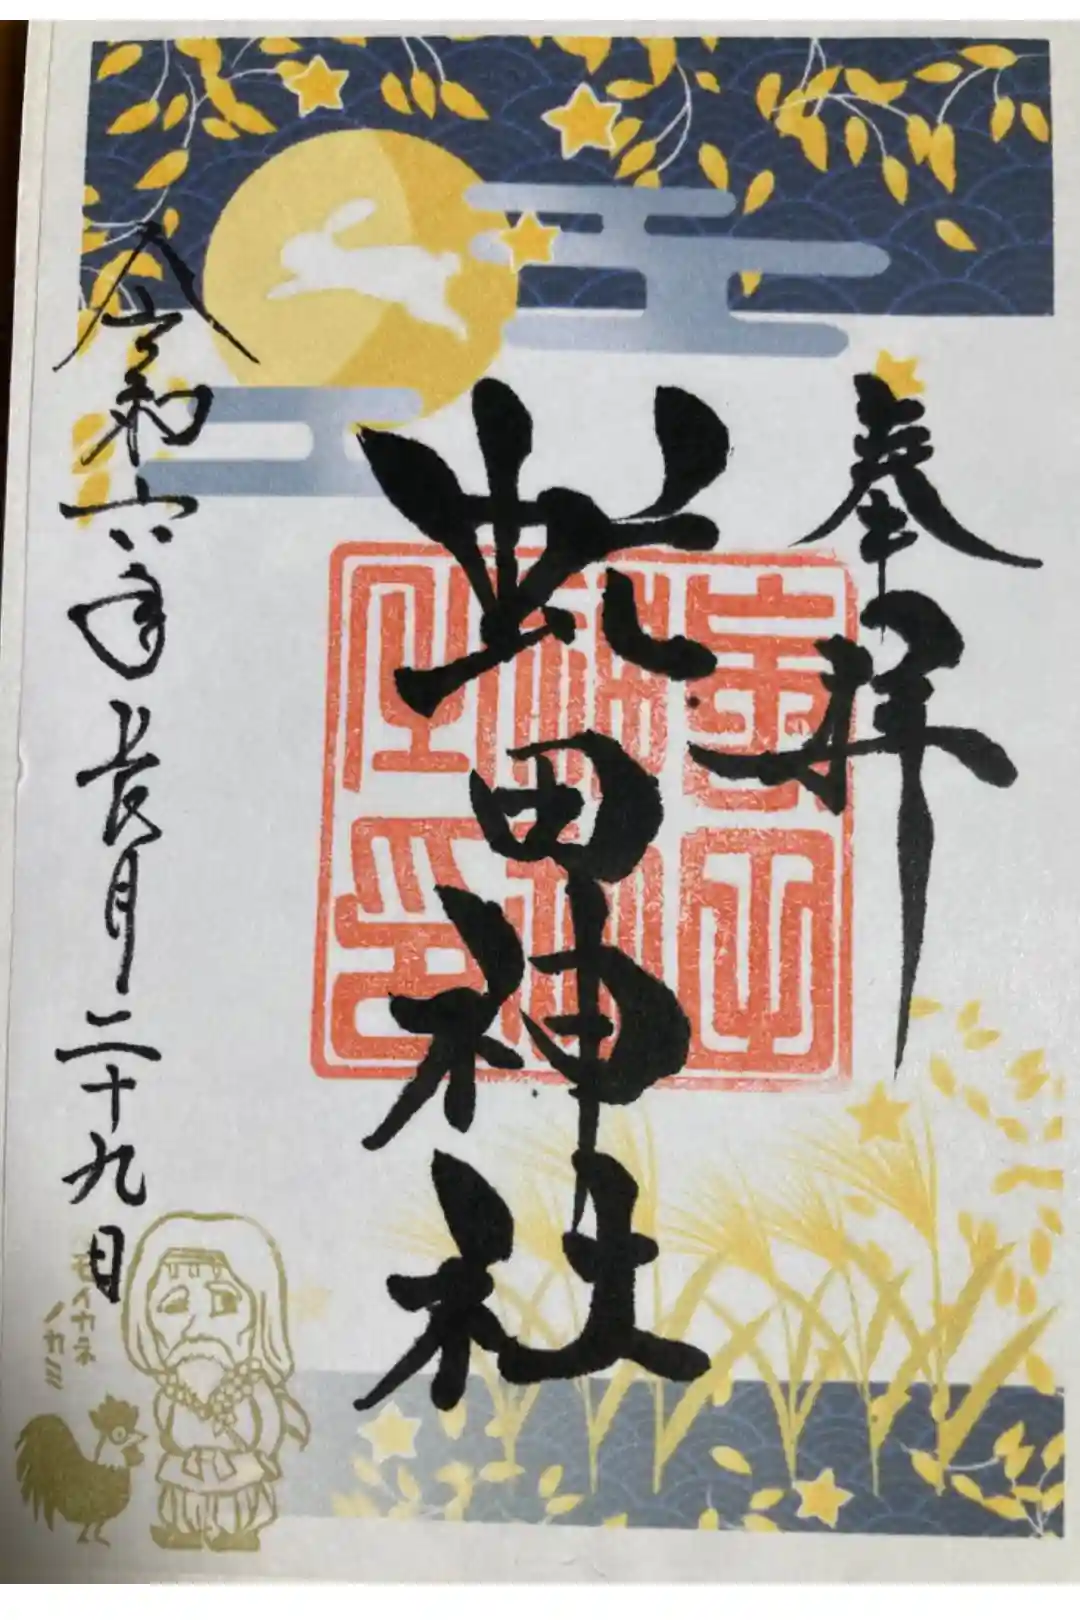 奉拝
田神社
令和六年長月二十九日
モイカネ
ノカミ